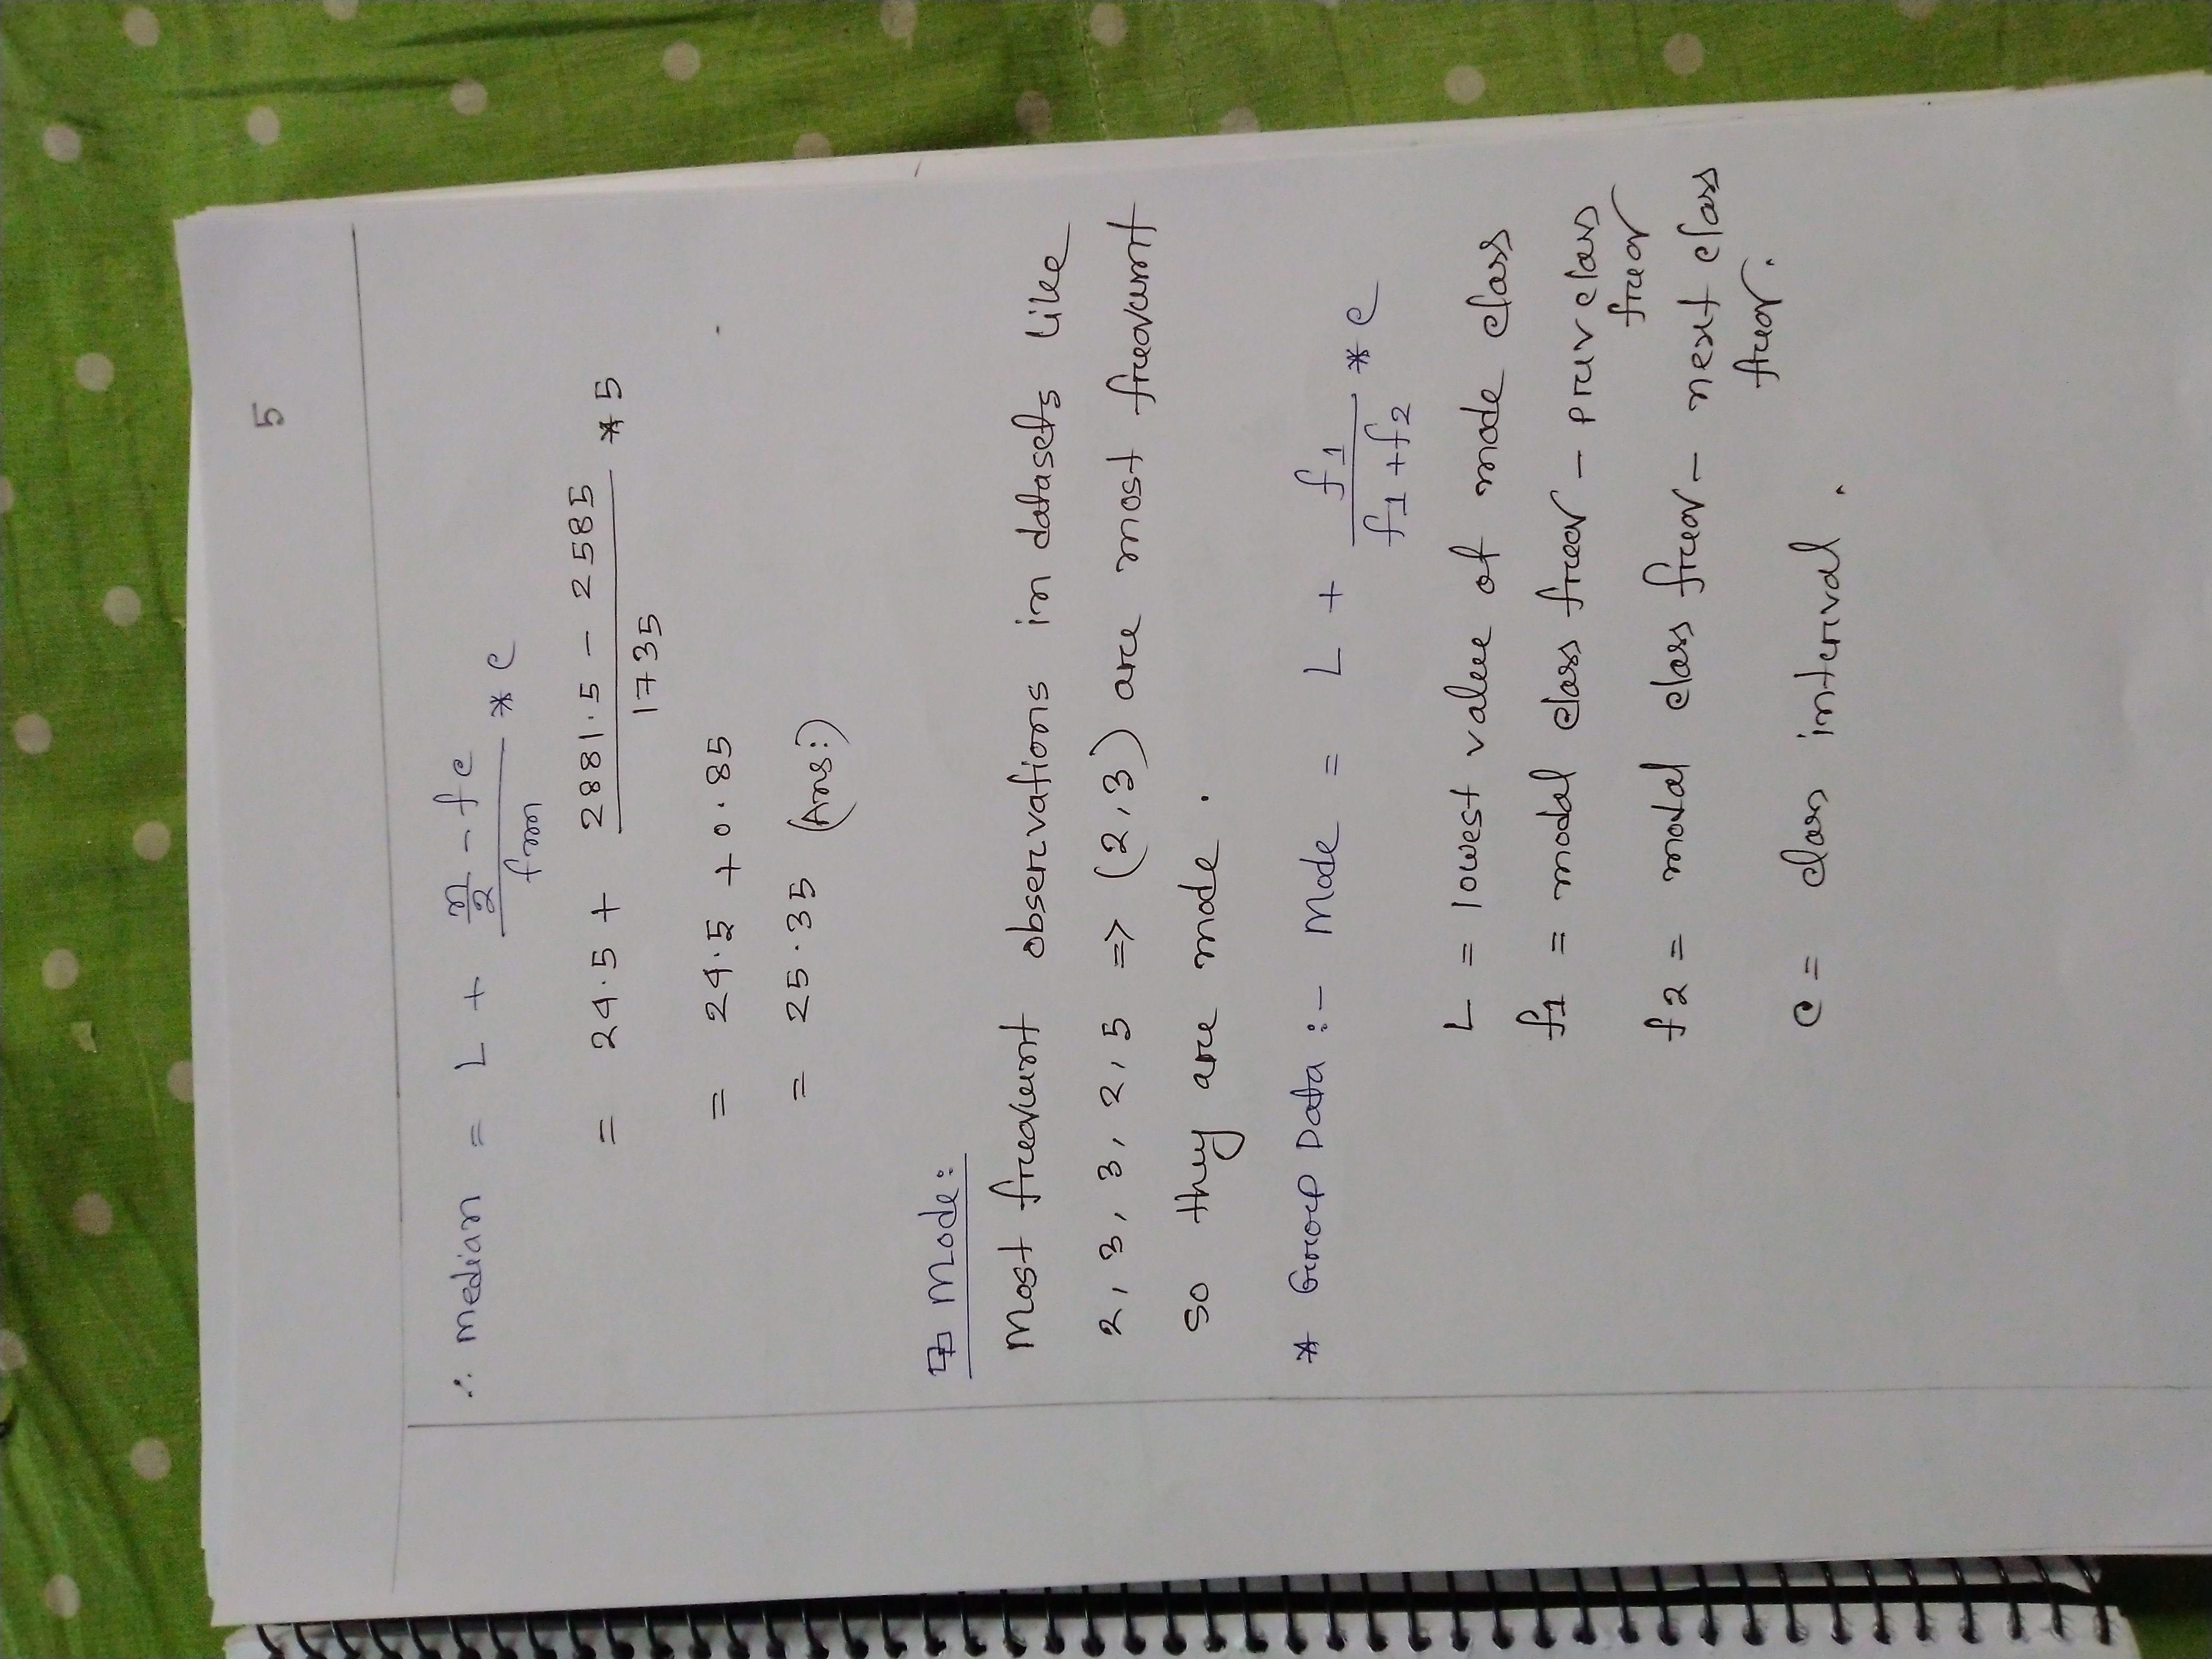 5
∴ median = L + (n/2 - fc)/fm * c
= 24.5 + (2881.5 - 2585)/1735 * 5
= 24.5 + 0.85
= 25.35 (Ans:)
Mode:
Most frequent observations in datasets like
2, 3, 3, 2, 5 => (2,3) are most frequent
so they are mode.
* Group Data :- Mode = L + f1/(f1+f2) * c
L = lowest value of mode class
f1 = modal class freq - prev class
freq
f2 = modal class freq - next class
freq.
c = class interval.